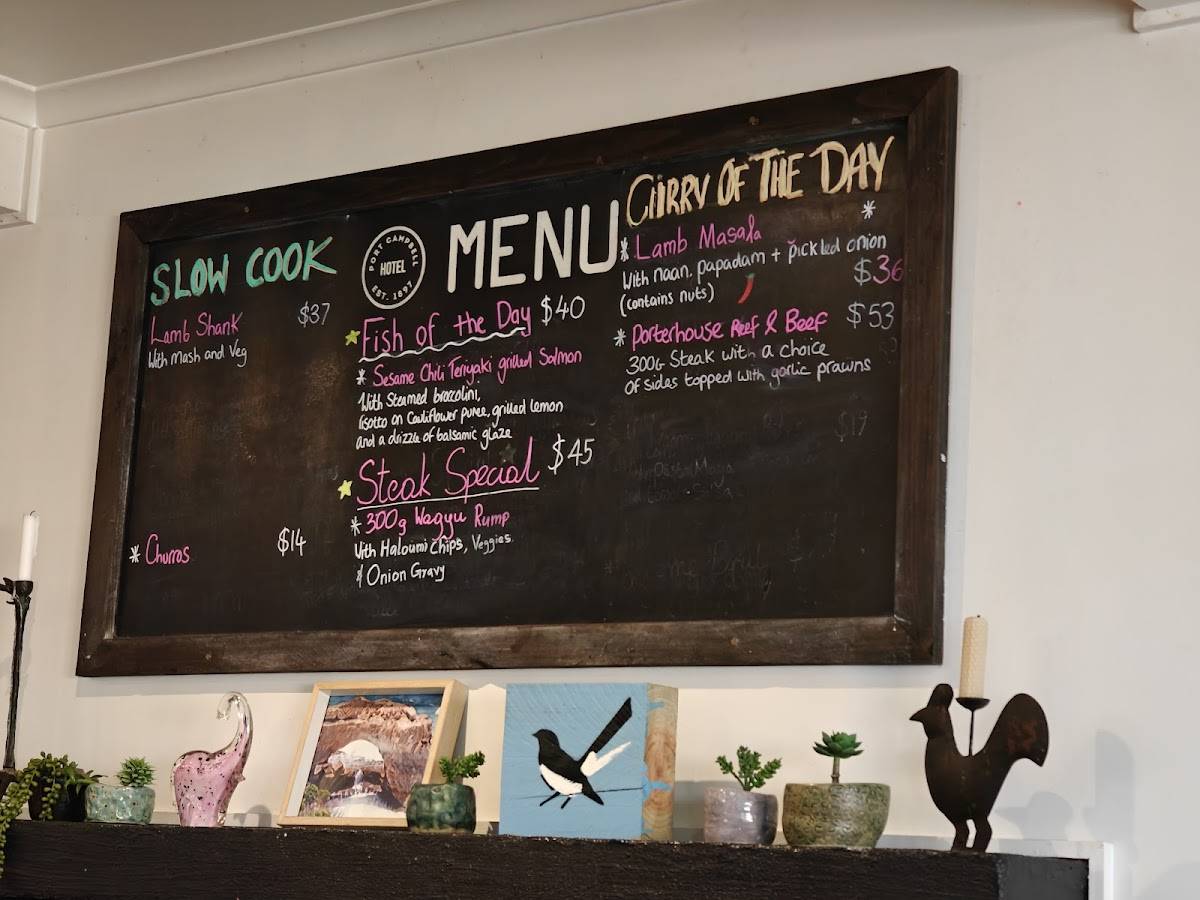 SLOW COOK
$37
Lamb Shank
With Mash and Veg
* Churros $14
PORT CAMPBELL
HOTEL
EST. 1897
MENU
Fish of the Day $40
* Sesame Chili Teriyaki grilled Salmon
With Steamed broccolini,
risotto on Cauliflower puree, grilled lemon
and a drizzle of balsamic glaze
Steak Special $45
* 300g Wagyu Rump
With Haloumi Chips, Veggies
& Onion Gravy
CURRY OF THE DAY
* Lamb Masala *
With naan, papadam + pickled onion
(contains nuts) $36
* Porterhouse Reef & Beef $53
300G Steak with a choice
of sides topped with garlic prawns
$19